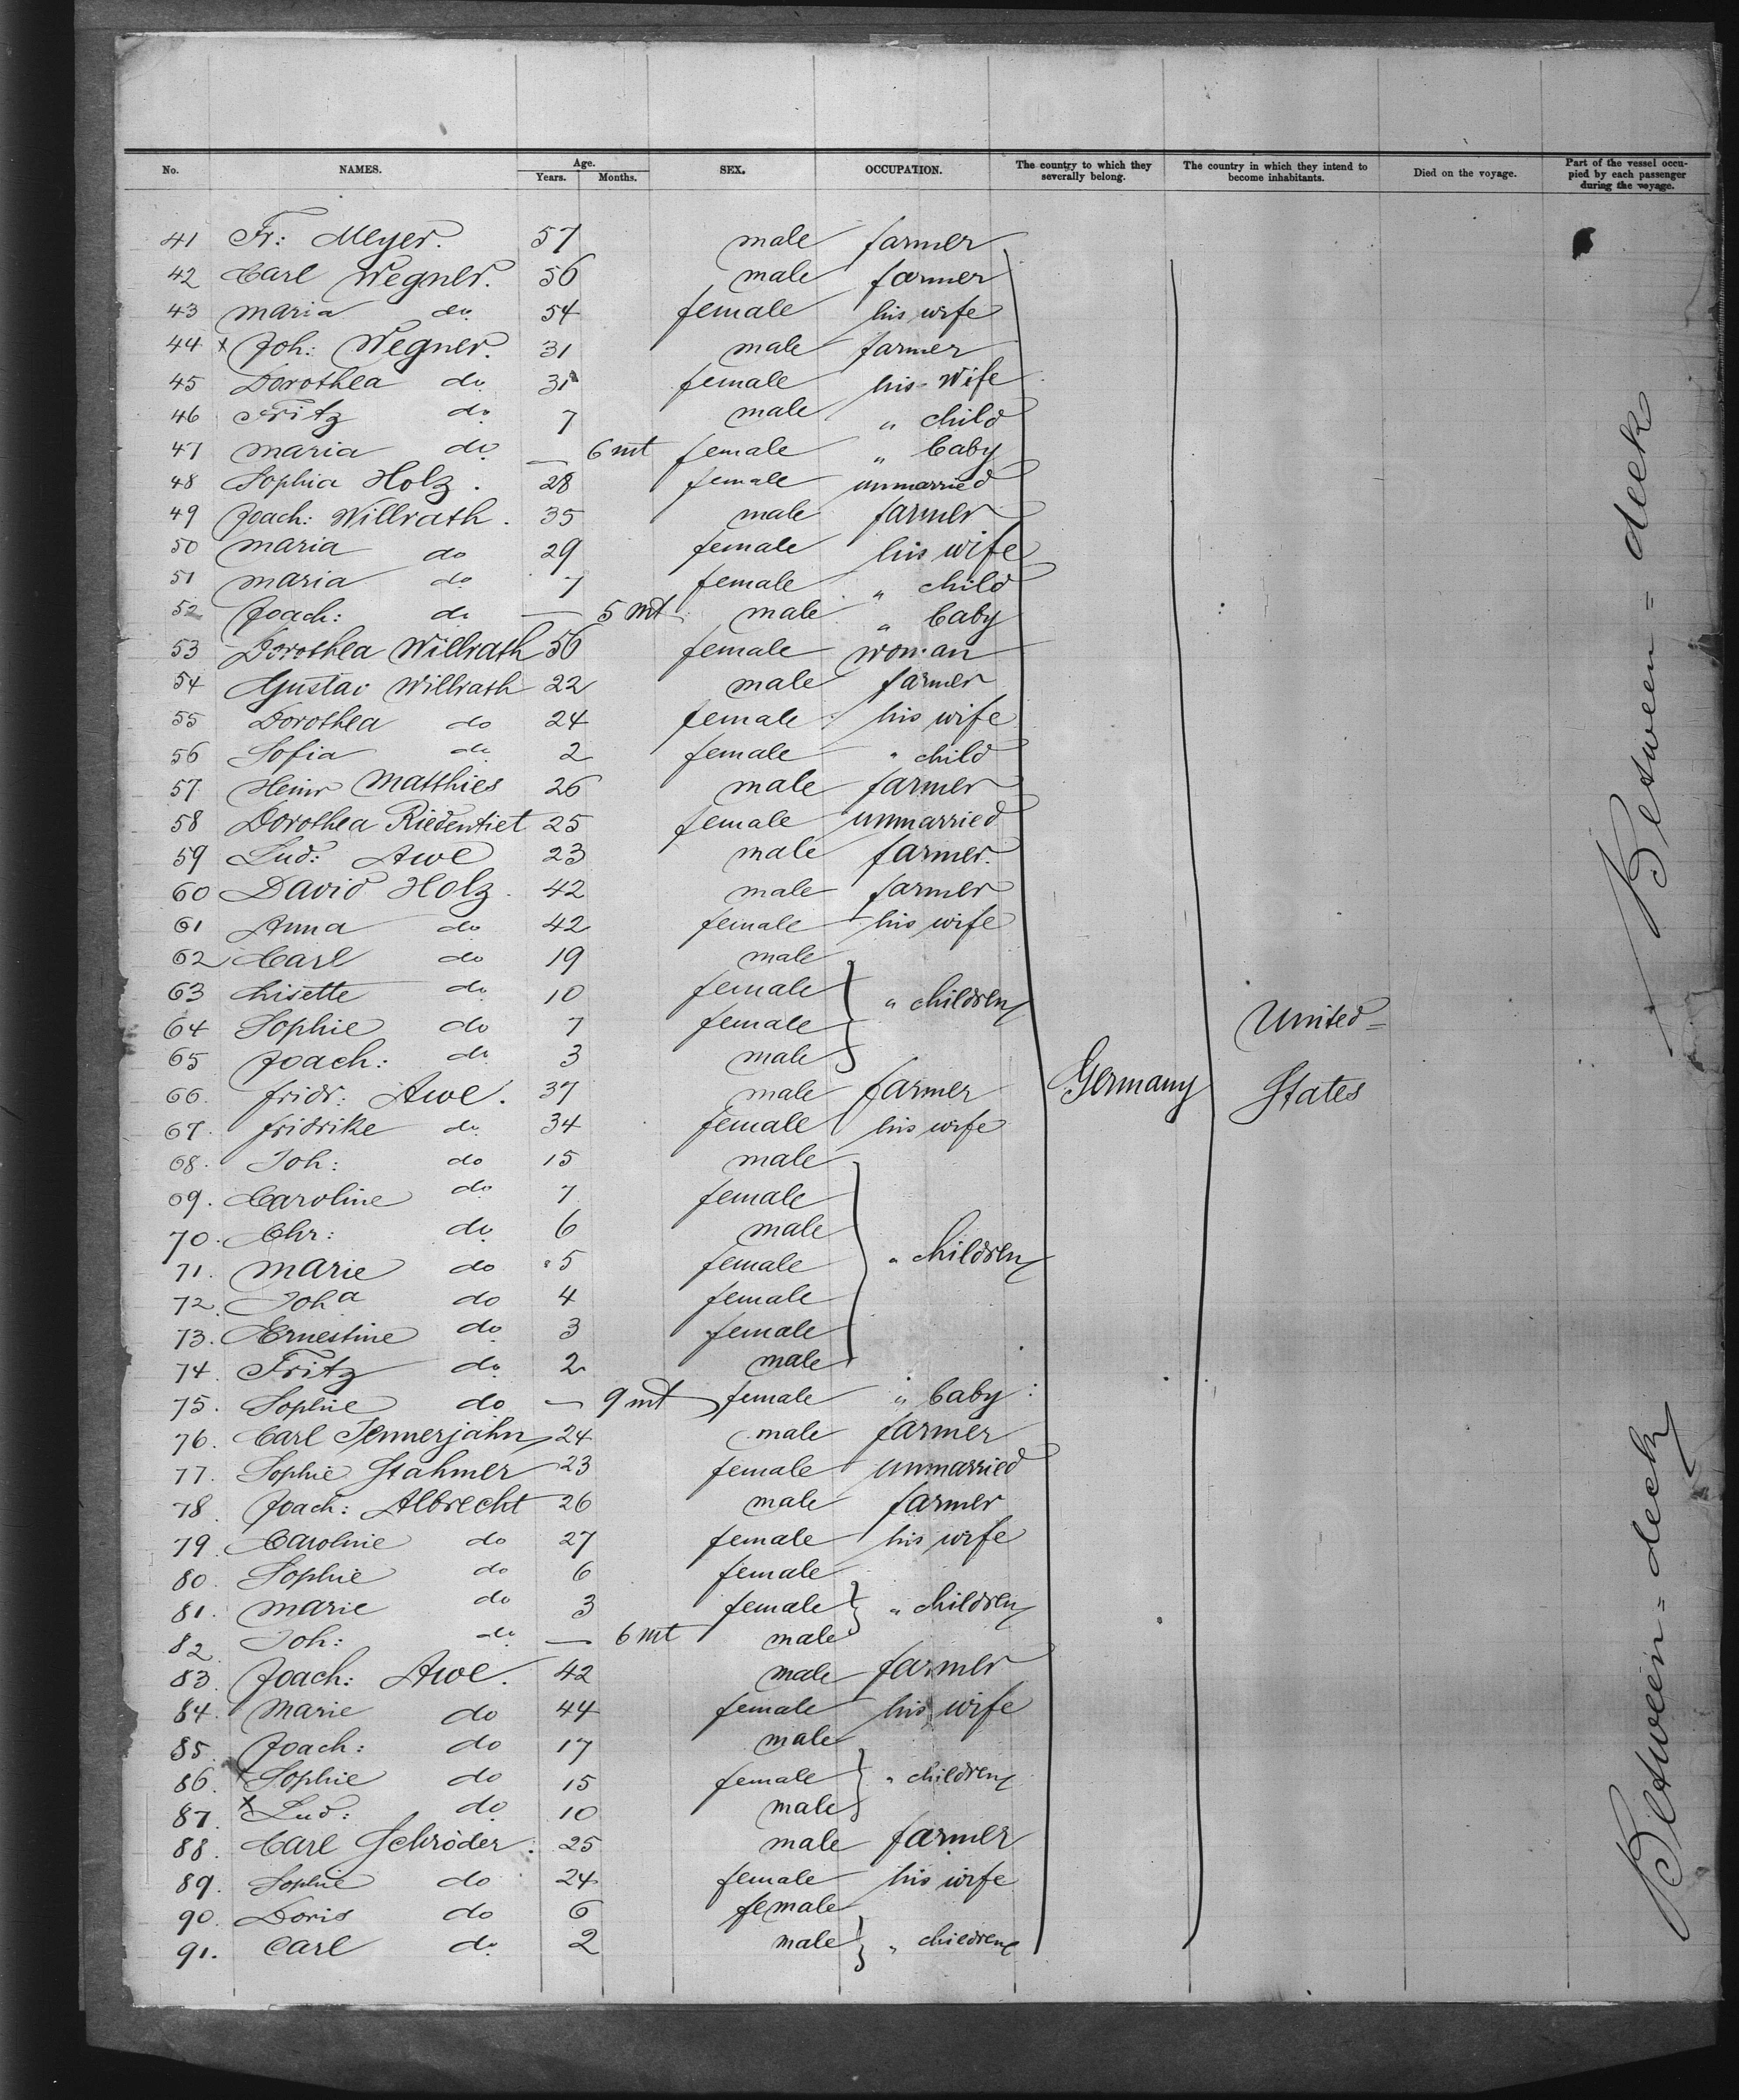 No. NAMES. Age. Years. Months. SEX. OCCUPATION. The country to which they severally belong. The country in which they intend to become inhabitants. Died on the voyage. Part of the vessel occupied by each passenger during the voyage.
41 Fr: Meyer. 57 male farmer
42 Carl Wegner. 56 male farmer
43 Maria do 54 female his wife
44 x Joh: Wegner. 31 male farmer
45 Dorothea do 31 female his wife
46 Fritz do 7 male " child
47 Maria do — 6 mt female " baby
48 Sophia Holz. 28 female unmarried
49 Joach: Willrath. 35 male farmer
50 Maria do 29 female his wife
51 Maria do 7 female " child
52 Joach: do — 5 mt male " baby
53 Dorothea Willrath 56 female woman
54 Gustav Willrath 22 male farmer
55 Dorothea do 24 female his wife
56 Sofia do 2 female " child
57 Heinr Matthies 26 male farmer
58 Dorothea Riedentiet 25 female unmarried
59 Lud: Awe 23 male farmer.
60 David Holz. 42 male farmer
61 Anna do 42 female his wife
62 Carl do 19 male
63 Lisette do 10 female " children
64 Sophie do 7 female
65 Joach: do 3 male
66. Fridr: Awe. 37 male farmer Germany United=States
67. Fridrike do 34 female his wife
68. Joh: do 15 male
69. Caroline do 7 female
70. Chr: do 6 male
71. Marie do 5 female " children
72. Joha do 4 female
73. Ernestine do 3 female
74. Fritz do 2 male
75. Sophie do — 9 mt female " baby
76. Carl Jennerjahn 24 male farmer
77. Sophie Stahmer 23 female unmarried
78. Joach: Albrecht 26 male farmer
79. Caroline do 27 female his wife
80. Sophie do 6 female
81. Marie do 3 female " children
82. Joh: do — 6 mt male
83. Joach: Awe. 42 male farmer
84. Marie do 44 female his wife
85. Joach: do 17 male
86. x Sophie do 15 female " children
87. x Lud: do 10 male
88. Carl Schröder: 25 male farmer
89. Sophie do 24 female his wife
90. Doris do 6 female
91. Carl do 2 male " children
Between=deck
Between=deck